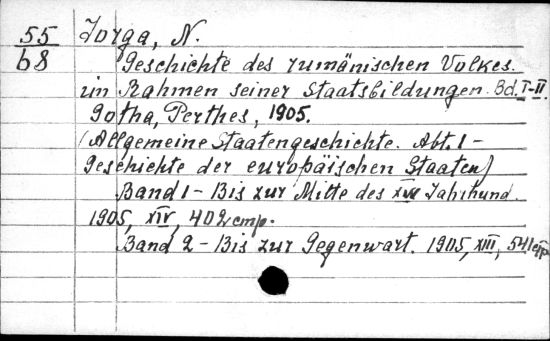 55
68
Jorga, N.
Geschichte des rumänischen Volkes
im Rahmen seiner Staatsbildungen. Bd. I-II.
Gotha, Perthes, 1905.
(Allgemeine Staatengeschichte. Abt. 1 -
Geschichte der europäischen Staaten)
Band 1 - Bis zur Mitte des XVII Jahrhund.
1905, XIV, 402 стр.
Band 2 - Bis zur Gegenwart. 1905, XIII, 541 стр.